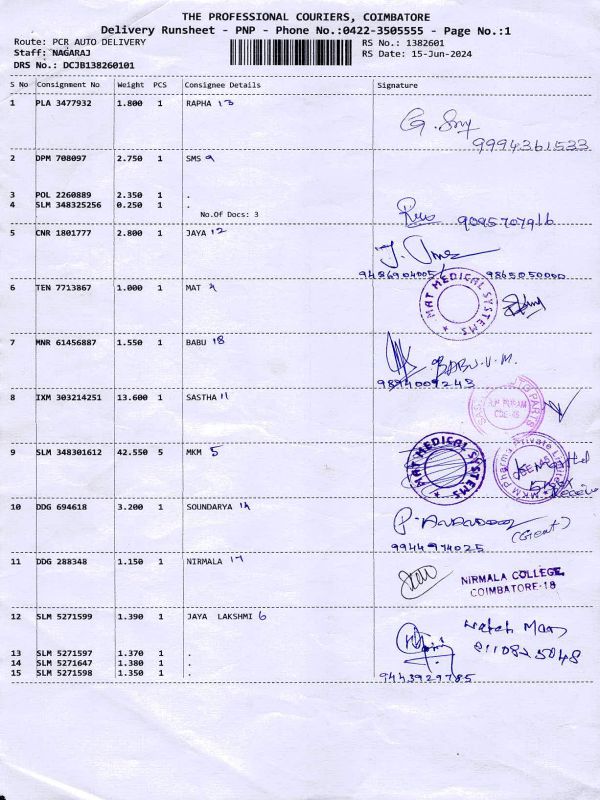 THE PROFESSIONAL COURIERS, COIMBATORE
Delivery Runsheet - PNP - Phone No.:0422-3505555 - Page No.:1
Route: PCR AUTO DELIVERY RS No.: 1382601
Staff: NAGARAJ RS Date: 15-Jun-2024
DRS No.: DCJB138260101
S No Consignment No Weight PCS Consignee Details Signature
1 PLA 3477932 1.800 1 RAPHA 13
9994361533
2 DPM 708097 2.750 1 SMS 9
3 POL 2260889 2.350 1 .
4 SLM 348325256 0.250 1 .
No.Of Docs: 3
9095707916
5 CNR 1801777 2.800 1 JAYA 12
9486904005 9865050000
6 TEN 7713867 1.000 1 MAT
MAT MEDICAL SYSTEMS
7 MNR 61456887 1.550 1 BABU 18
BABU.V.M.
9894009243
8 IXM 303214251 13.600 1 SASTHA 11
9 SLM 348301612 42.550 5 MKM 5
MAT MEDICAL SYSTEMS
MKM Pharma Private Limited
10 DDG 694618 3.200 1 SOUNDARYA
9944974025
11 DDG 288348 1.150 1 NIRMALA 17
NIRMALA COLLEGE
COIMBATORE-18
12 SLM 5271599 1.390 1 JAYA LAKSHMI 6
13 SLM 5271597 1.370 1 .
14 SLM 5271647 1.380 1 .
15 SLM 5271598 1.350 1 .
9443929785